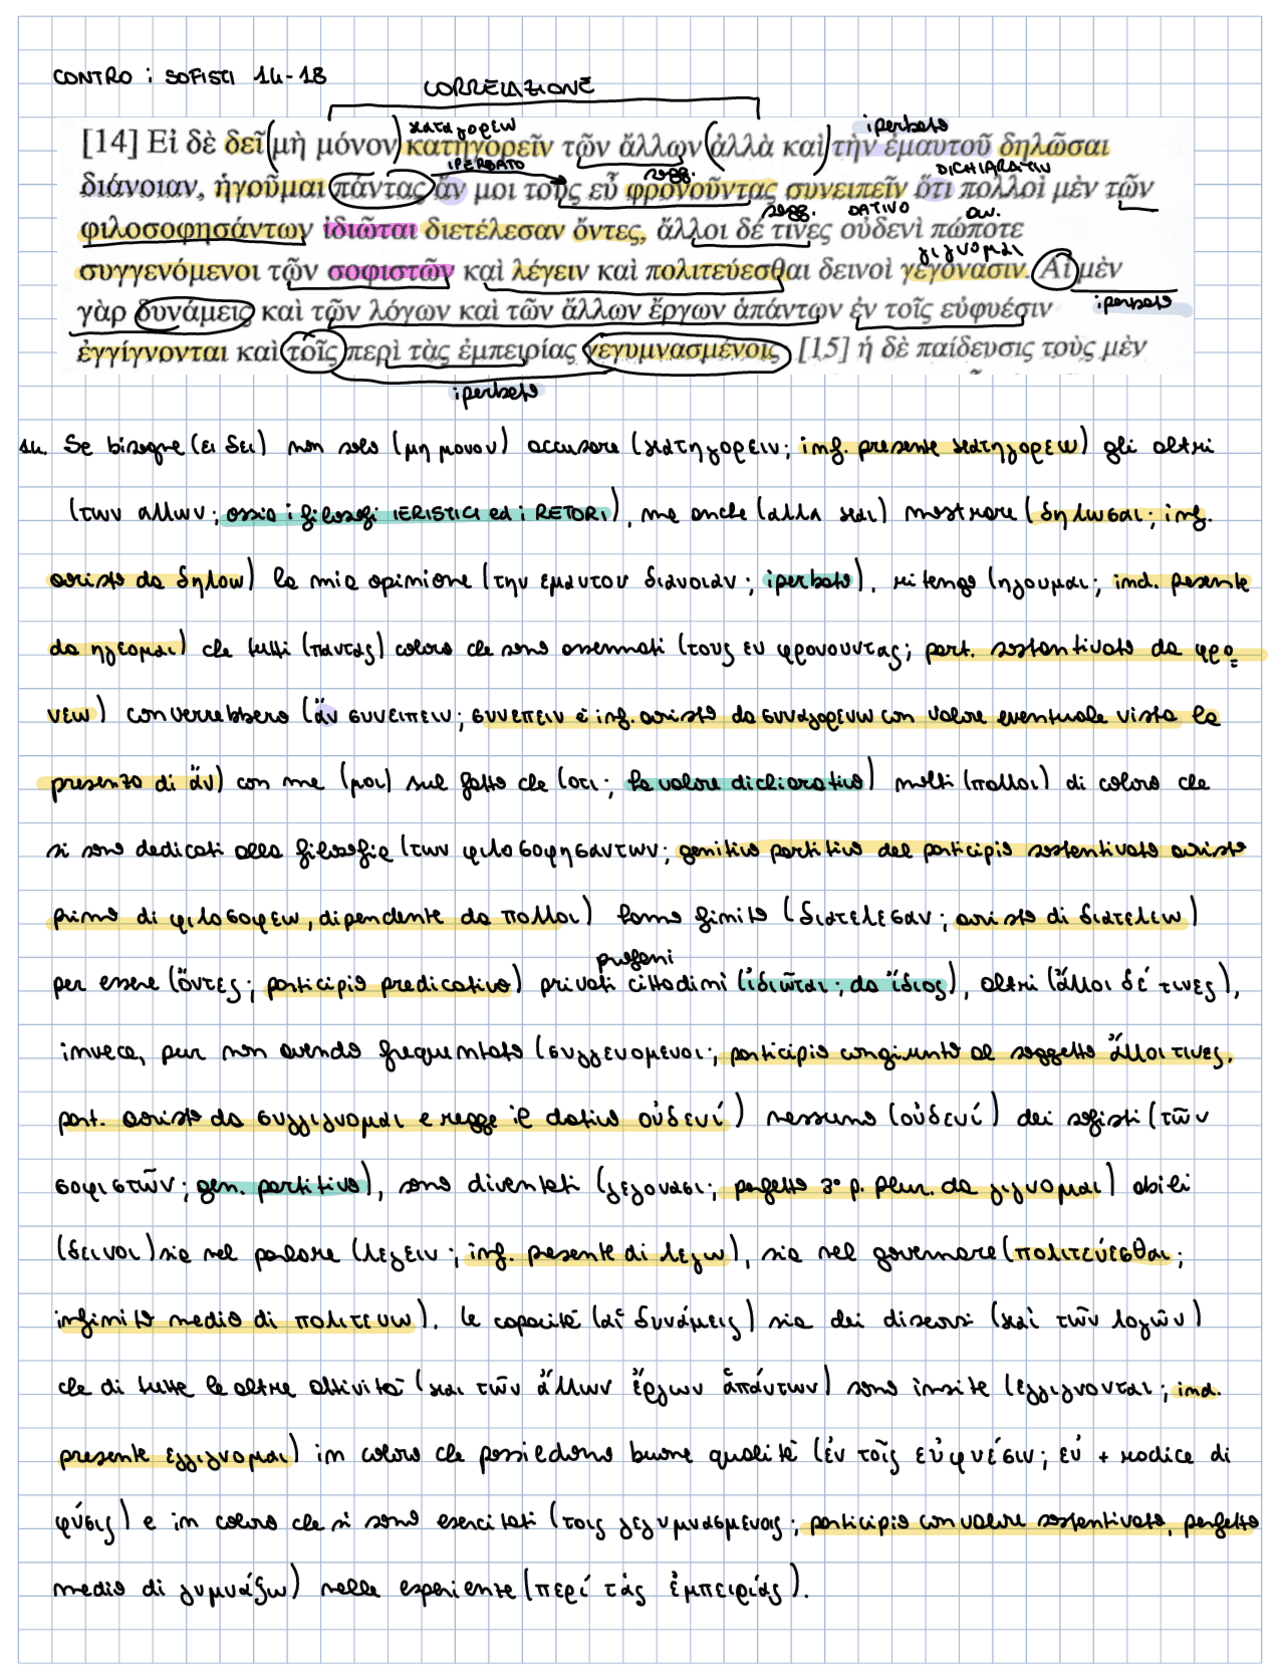 CONTRO i SOFISTI 14-18
CORRELAZIONE
κατηγορεω
iperbato
[14] Εἰ δὲ δεῖ (μὴ μόνον) κατηγορεῖν τῶν ἄλλων (ἀλλὰ καὶ) τὴν ἐμαυτοῦ δηλῶσαι
IPERBATO
sogg.
DICHIARATIV
διάνοιαν, ἡγοῦμαι πάντας ἄν μοι τοὺς εὖ φρονοῦντας συνειπεῖν ὅτι πολλοὶ μὲν τῶν
sogg.
DATIVO
avv.
φιλοσοφησάντων ἰδιῶται διετέλεσαν ὄντες, ἄλλοι δέ τινες οὐδενὶ πώποτε
γιγνομαι
συγγενόμενοι τῶν σοφιστῶν καὶ λέγειν καὶ πολιτεύεσθαι δεινοὶ γεγόνασιν. Αἱ μὲν
iperbato
γὰρ δυνάμεις καὶ τῶν λόγων καὶ τῶν ἄλλων ἔργων ἁπάντων ἐν τοῖς εὐφυέσιν
ἐγγίγνονται καὶ τοῖς περὶ τὰς ἐμπειρίας γεγυμνασμένοις [15] ἡ δὲ παίδευσις τοὺς μὲν
iperbato
14. Se bisogna (ει δει) non solo (μη μονον) accusare (κατηγορειν; inf. presente κατηγορεω) gli altri
(των αλλων; ossia i filosofi IERISTICI ed i RETORI), ma anche (αλλα και) mostrare (δηλωσαι; inf.
aoristo da δηλοω) la mia opinione (την εμαυτου διανοιαν; iperbato), ritengo (ηγουμαι; ind. presente
da ηγεομαι) che tutti (παντας) coloro che sono assennati (τους ευ φρονουντας; part. sostantivato da φρο
νεω) converrebbero (ἄν συνειπειν; συνειπειν è inf. aoristo da συναγορευω con valore eventuale vista la
presenza di ἄν) con me (μοι) sul fatto che (οτι; ha valore dichiarativo) molti (πολλοι) di coloro che
si sono dedicati alla filosofia (των φιλοσοφησαντων; genitivo partitivo del participio sostantivato aoristo
primo di φιλοσοφεω, dipendente da πολλοι) hanno finito (διατελεσαν; aoristo di διατελεω)
profani
per essere (ὄντες; participio predicativo) privati cittadini (ἰδιῶται; da ἴδιος), altri (ἄλλοι δέ τινες),
invece, pur non avendo frequentato (συγγενομενοι; participio congiunto al soggetto ἄλλοι τινες,
part. aoristo da συγγιγνομαι e regge il dativo οὐδενί) nessuno (οὐδενί) dei sofisti (τῶν
σοφιστῶν; gen. partitivo), sono diventati (γεγονασι; perfetto 3° p. plur. da γιγνομαι) abili
(δεινοι) sia nel parlare (λεγειν; inf. presente di λεγω), sia nel governare (πολιτεύεσθαι;
infinito medio di πολιτευω). le capacità (αἱ δυνάμεις) sia dei discorsi (καὶ τῶν λογῶν)
che di tutte le altre attività (και τῶν ἄλλων ἔργων ἁπάντων) sono insite (εγγιγνονται; ind.
presente εγγιγνομαι) in coloro che possiedono buone qualità (ἐν τοῖς εὐφυέσιν; εὐ + radice di
φύσις) e in coloro che si sono esercitati (τοις γεγυμνασμενοις; participio con valore sostantivato, perfetto
medio di γυμνάζω) nelle esperienze (περί τὰς ἐμπειρίας).